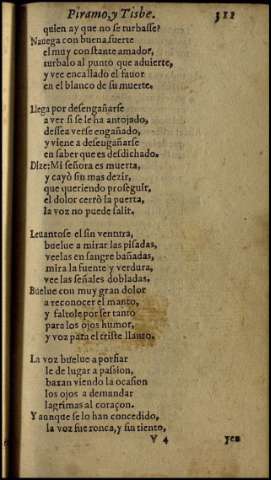 Piramo, y Tisbe. 312
quien ay que no se turbasse?
Nauega con buena suerte
el muy constante amador,
turbalo al punto que aduierte,
y vee encallado el fauor
en el blanco de su muerte.
Llega por desengañarse
a ver si se le ha antojado,
dessea verse engañado,
y viene a desengañarse
en saber que es desdichado.
Dize: Mi señora es muerta,
y cayò sin mas dezir,
que queriendo proseguir,
el dolor cerrò la puerta,
la voz no puede salir.
Leuantose el sin ventura,
buelue a mirar las pisadas,
veelas en sangre bañadas,
mira la fuente y verdura,
vee las señales dobladas.
Buelue con muy gran dolor
a reconocer el manto,
y faltole por ser tanto
para los ojos humor,
y voz para el triste llanto.
La voz buelue a porfiar
le de lugar a passion,
baxan viendo la ocasion
los ojos a demandar
lagrimas al coraçon.
Y aunque se lo han concedido,
la voz fue ronca, y sin tiento,
V 4 yen